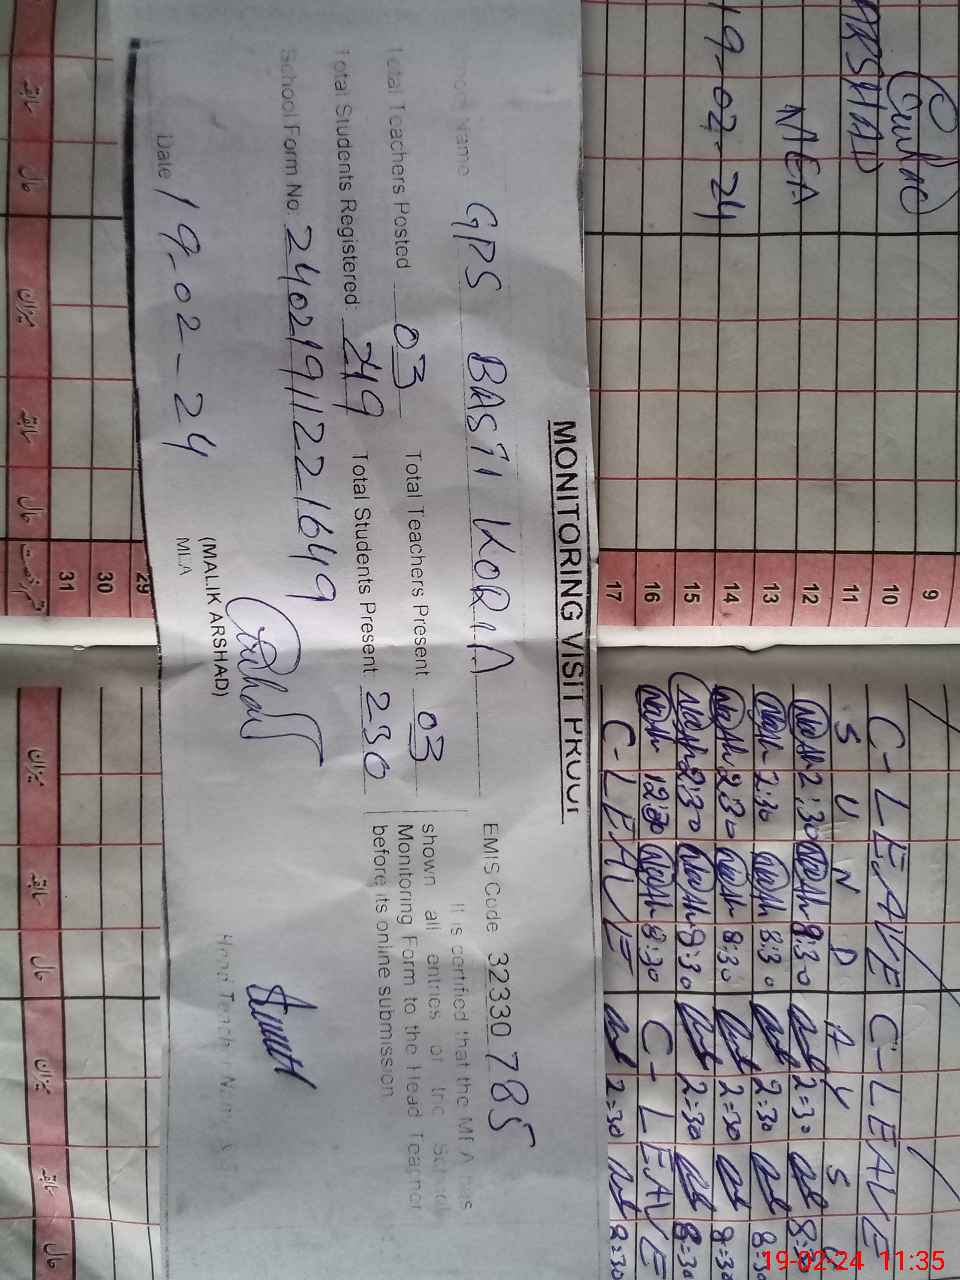 MONITORING VISIT PROOF
Name GPS BASTI KORIA EMIS Code 32330785
Total Teachers Posted 03 Total Teachers Present 03
Total Students Registered: 249 Total Students Present 230
School Form No. 24021911221649
It is certified that the MEA has
shown all entries of the School
Monitoring Form to the Head Teacher
before its online submission
Date 19-02-24
(MALIK ARSHAD)
MEA
Head Teacher Name &
ARSHAD
MEA
19-02-24
9
10 C-LEAVE C-LEAVE
11 SUNDAY S
12 2:30 8:30 2=30 8:
13 2:30 8:30 2=30 8:3
14 2:30 8:30 2=30 8=30
15 2:30 8:30 2=30 8=30
16 12:30 8:30 C-LEAVE
17 C-LEAVE 2=30 8=30
29
30
31
میزان
سابقہ
حال
میزان
سابقہ
حال
سابقہ
حال
میزان
سابقہ
حال
19-02-24 11:35